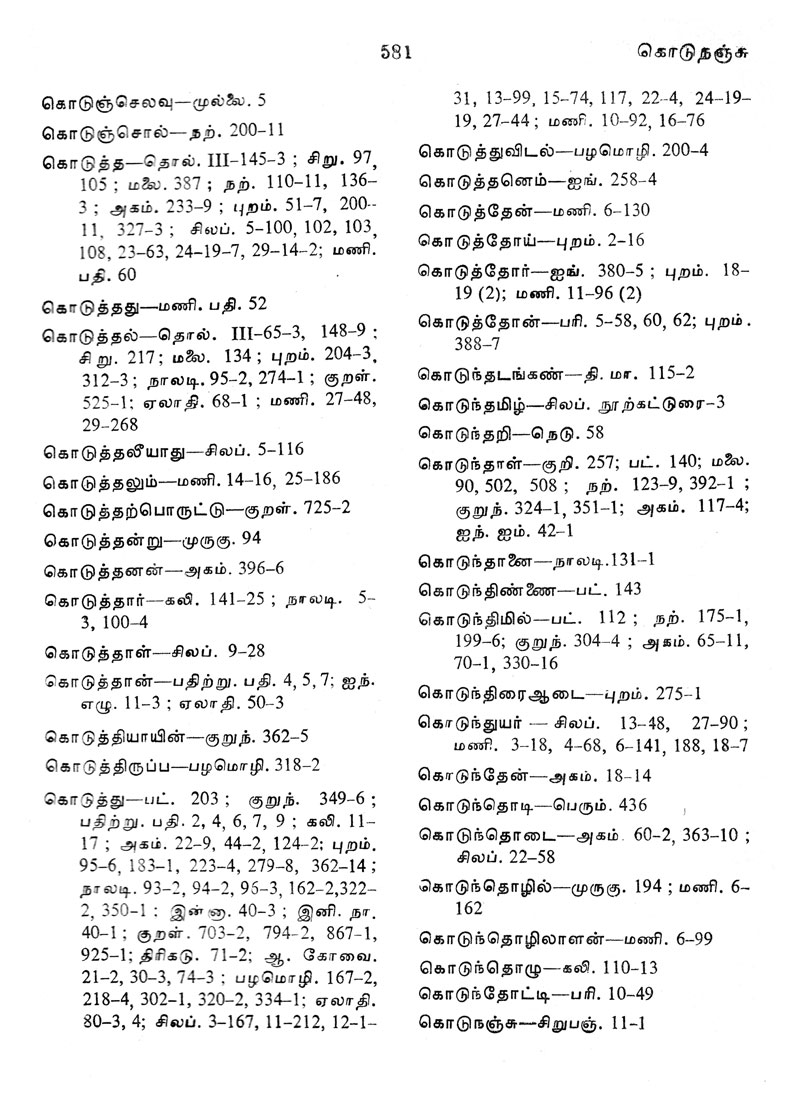 581
கொடுநஞ்சு
கொடுஞ்செலவு—முல்லை. 5
கொடுஞ்சொல்—நற். 200-11
கொடுத்த—தொல். III-145-3 ; சிறு. 97,
105 ; மலை. 387 ; நற். 110-11, 136-
3 ; அகம். 233-9 ; புறம். 51-7, 200-
11, 327-3 ; சிலப். 5-100, 102, 103,
108, 23-63, 24-19-7, 29-14-2; மணி.
பதி. 60
கொடுத்தது—மணி. பதி. 52
கொடுத்தல்—தொல். III-65-3, 148-9 ;
சிறு. 217; மலை. 134 ; புறம். 204-3,
312-3 ; நாலடி. 95-2, 274-1 ; குறள்.
525-1; ஏலாதி. 68-1 ; மணி. 27-48,
29-268
கொடுத்தலீயாது—சிலப். 5-116
கொடுத்தலும்—மணி. 14-16, 25-186
கொடுத்தற்பொருட்டு—குறள். 725-2
கொடுத்தன்று—முருகு. 94
கொடுத்தனன்—அகம். 396-6
கொடுத்தார்—கலி. 141-25 ; நாலடி. 5-
3, 100-4
கொடுத்தாள்—சிலப். 9-28
கொடுத்தான்—பதிற்று. பதி. 4, 5, 7; ஐந்.
எழு. 11-3 ; ஏலாதி. 50-3
கொடுத்தியாயின்—குறுந். 362-5
கொடுத்திருப்ப—பழமொழி. 318-2
கொடுத்து—பட். 203 ; குறுந். 349-6 ;
பதிற்று. பதி. 2, 4, 6, 7, 9 ; கலி. 11-
17 ; அகம். 22-9, 44-2, 124-2; புறம்.
95-6, 183-1, 223-4, 279-8, 362-14 ;
நாலடி. 93-2, 94-2, 96-3, 162-2,322-
2, 350-1 : இன்னா. 40-3 ; இனி. நா.
40-1 ; குறள். 703-2, 794-2, 867-1,
925-1; திரிகடு. 71-2; ஆ. கோவை.
21-2, 30-3, 74-3 ; பழமொழி. 167-2,
218-4, 302-1, 320-2, 334-1; ஏலாதி.
80-3, 4; சிலப். 3-167, 11-212, 12-1-
31, 13-99, 15-74, 117, 22-4, 24-19-
19, 27-44 ; மணி. 10-92, 16-76
கொடுத்துவிடல்—பழமொழி. 200-4
கொடுத்தனெம்—ஐங். 258-4
கொடுத்தேன்—மணி. 6-130
கொடுத்தோய்—புறம். 2-16
கொடுத்தோர்—ஐங். 380-5 ; புறம். 18-
19 (2); மணி. 11-96 (2)
கொடுத்தோன்—பரி. 5-58, 60, 62; புறம்.
388-7
கொடுந்தடங்கண்—தி. மா. 115-2
கொடுந்தமிழ்—சிலப். நூற்கட்டுரை-3
கொடுந்தறி—நெடு. 58
கொடுந்தாள்—குறி. 257; பட். 140; மலை.
90, 502, 508 ; நற். 123-9, 392-1 ;
குறுந். 324-1, 351-1; அகம். 117-4;
ஐந். ஐம். 42-1
கொடுந்தானை—நாலடி.131-1
கொடுந்திண்ணை—பட். 143
கொடுந்திமில்—பட். 112 ; நற். 175-1,
199-6; குறுந். 304-4 ; அகம். 65-11,
70-1, 330-16
கொடுந்திரைஆடை—புறம். 275-1
கொடுந்துயர் — சிலப். 13-48, 27-90 ;
மணி. 3-18, 4-68, 6-141, 188, 18-7
கொடுந்தேன்—அகம். 18-14
கொடுந்தொடி—பெரும். 436
கொடுந்தொடை—அகம். 60-2, 363-10 ;
சிலப். 22-58
கொடுந்தொழில்—முருகு. 194 ; மணி. 6-
162
கொடுந்தொழிலாளன்—மணி. 6-99
கொடுந்தொழு—கலி. 110-13
கொடுந்தோட்டி—பரி. 10-49
கொடுநஞ்சு—சிறுபஞ். 11-1